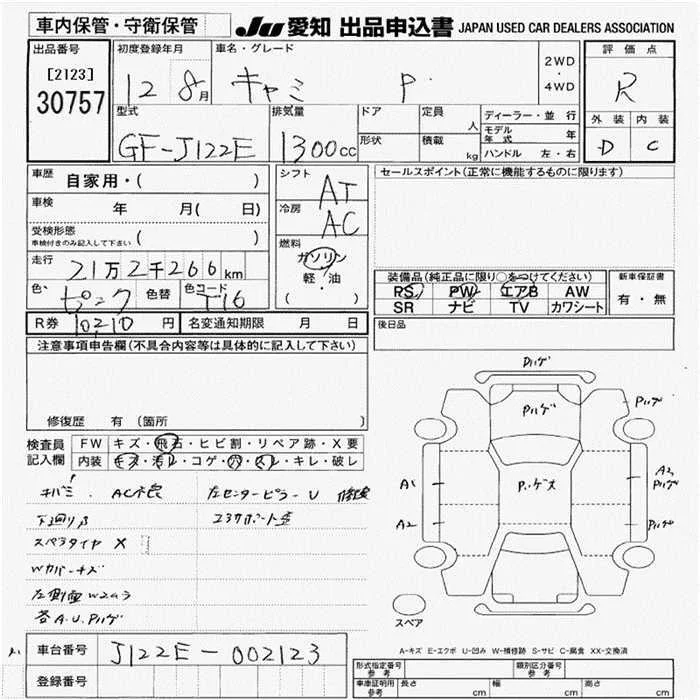 車内保管・守衛保管
JU 愛知 出品申込書 JAPAN USED CAR DEALERS ASSOCIATION
出品番号
[2123]
30757
初度登録年月
12 8月
車名・グレード
キャミ P
2WD
・
4WD
評価点
R
外装 内装
D C
型式
GF-J122E
排気量
1300cc
ドア
形状
定員
人
積載
kg
ディーラー・並行
モデル年式 年
ハンドル 左・右
車歴 自家用・( )
車検 年 月( 日)
受検形態
車検付きのみ記入して下さい ( )
走行 21万2千266km
色 ピンク 色替 色コード T16
シフト AT
冷房 AC
燃料
ガソリン
軽・油
( )
セールスポイント(正常に機能するものに限ります)
装備品(純正品に限り○をつけてください)
PS PW エアB AW
SR ナビ TV カワシート
新車保証書
有・無
後日品
R券 10210円 名変通知期限 月 日
注意事項申告欄(不具合内容等は具体的に記入して下さい)
修復歴 有 〔箇所 〕
検査員記入欄
FW キズ・飛石・ヒビ割・リペア跡・X要
内装 キズ・汚レ・コゲ・穴・スレ・キレ・破レ
AC不良 左センターピラーU 修復
下回りサビ
スペアタイヤX
Wカバーキズ
各A.U.Pハゲ
Pハゲ
Pハゲ
Pハゲ
A1
A2
A2
Pハゲ
Pハゲ
スペア
A-キズ E-エクボ U-凹み W-補修跡 S-サビ C-腐食 XX-交換済
車台番号 J122E-002123
登録番号
形式指定番号 参考
類別区分番号 参考
車庫証明用 参考 長さ cm 幅 cm 高さ cm